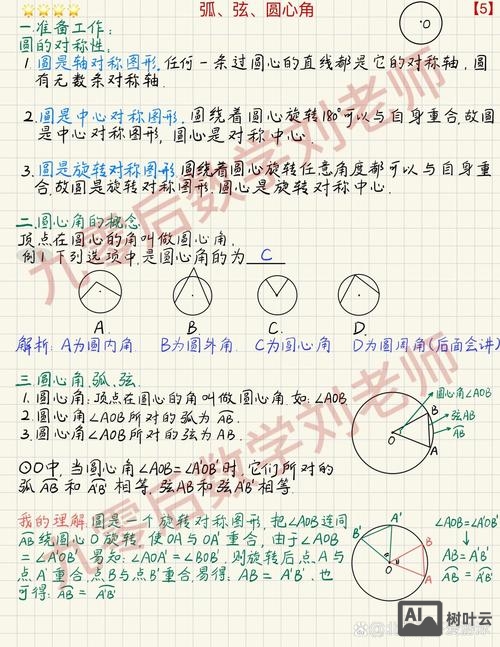 弧、弦、圆心角
【5】
一.准备工作:
圆的对称性:
1. 圆是轴对称图形,任何一条过圆心的直线都是它的对称轴,圆
有无数条对称轴.
2. 圆是中心对称图形,圆绕着圆心旋转180°可以与自身重合,故圆
是中心对称图形,圆心是对称中心.
3. 圆是旋转对称图形,圆绕着圆心旋转任意角度都可以与自身重
合,故圆是旋转对称图形.圆心是旋转对称中心.
二.圆心角的概念
顶点在圆心的角叫做圆心角.
例1.下列选项中,是圆心角的为 C
A. B. C. D.
解析: A为圆内角. B为圆外角. C为圆心角 D为圆周角(后面会讲)
三.圆心角.弧.弦.
1. 圆心角:顶点在圆心的角叫做圆心角.如:∠AOB
2. 圆心角∠AOB所对的弧为 AB.
3. 圆心角∠AOB所对的弦为AB.
圆心角∠AOB
弦AB
AB
O
B
A
⊙O中,当圆心角∠AOB=∠A'OB'时,它们所对的
弧 AB 和 A'B' 相等,弦AB和弦A'B'相等.
我的理解:圆是一个旋转对称图形,把∠AOB连同
AB绕圆心O旋转,使OA与OA'重合,由于∠AOB
=∠A'OB',易知:∠AOA'=∠BOB',则旋转后点A与
点A'重合,点B与点B'重合,易得: AB = A'B'.也
可得: AB = A'B'
B'
A'
B
A
O
∠AOB=∠A'OB'
AB=A'B'
AB = A'B'
九零后数学刘老师
九零后数学刘老师
AI 树叶云